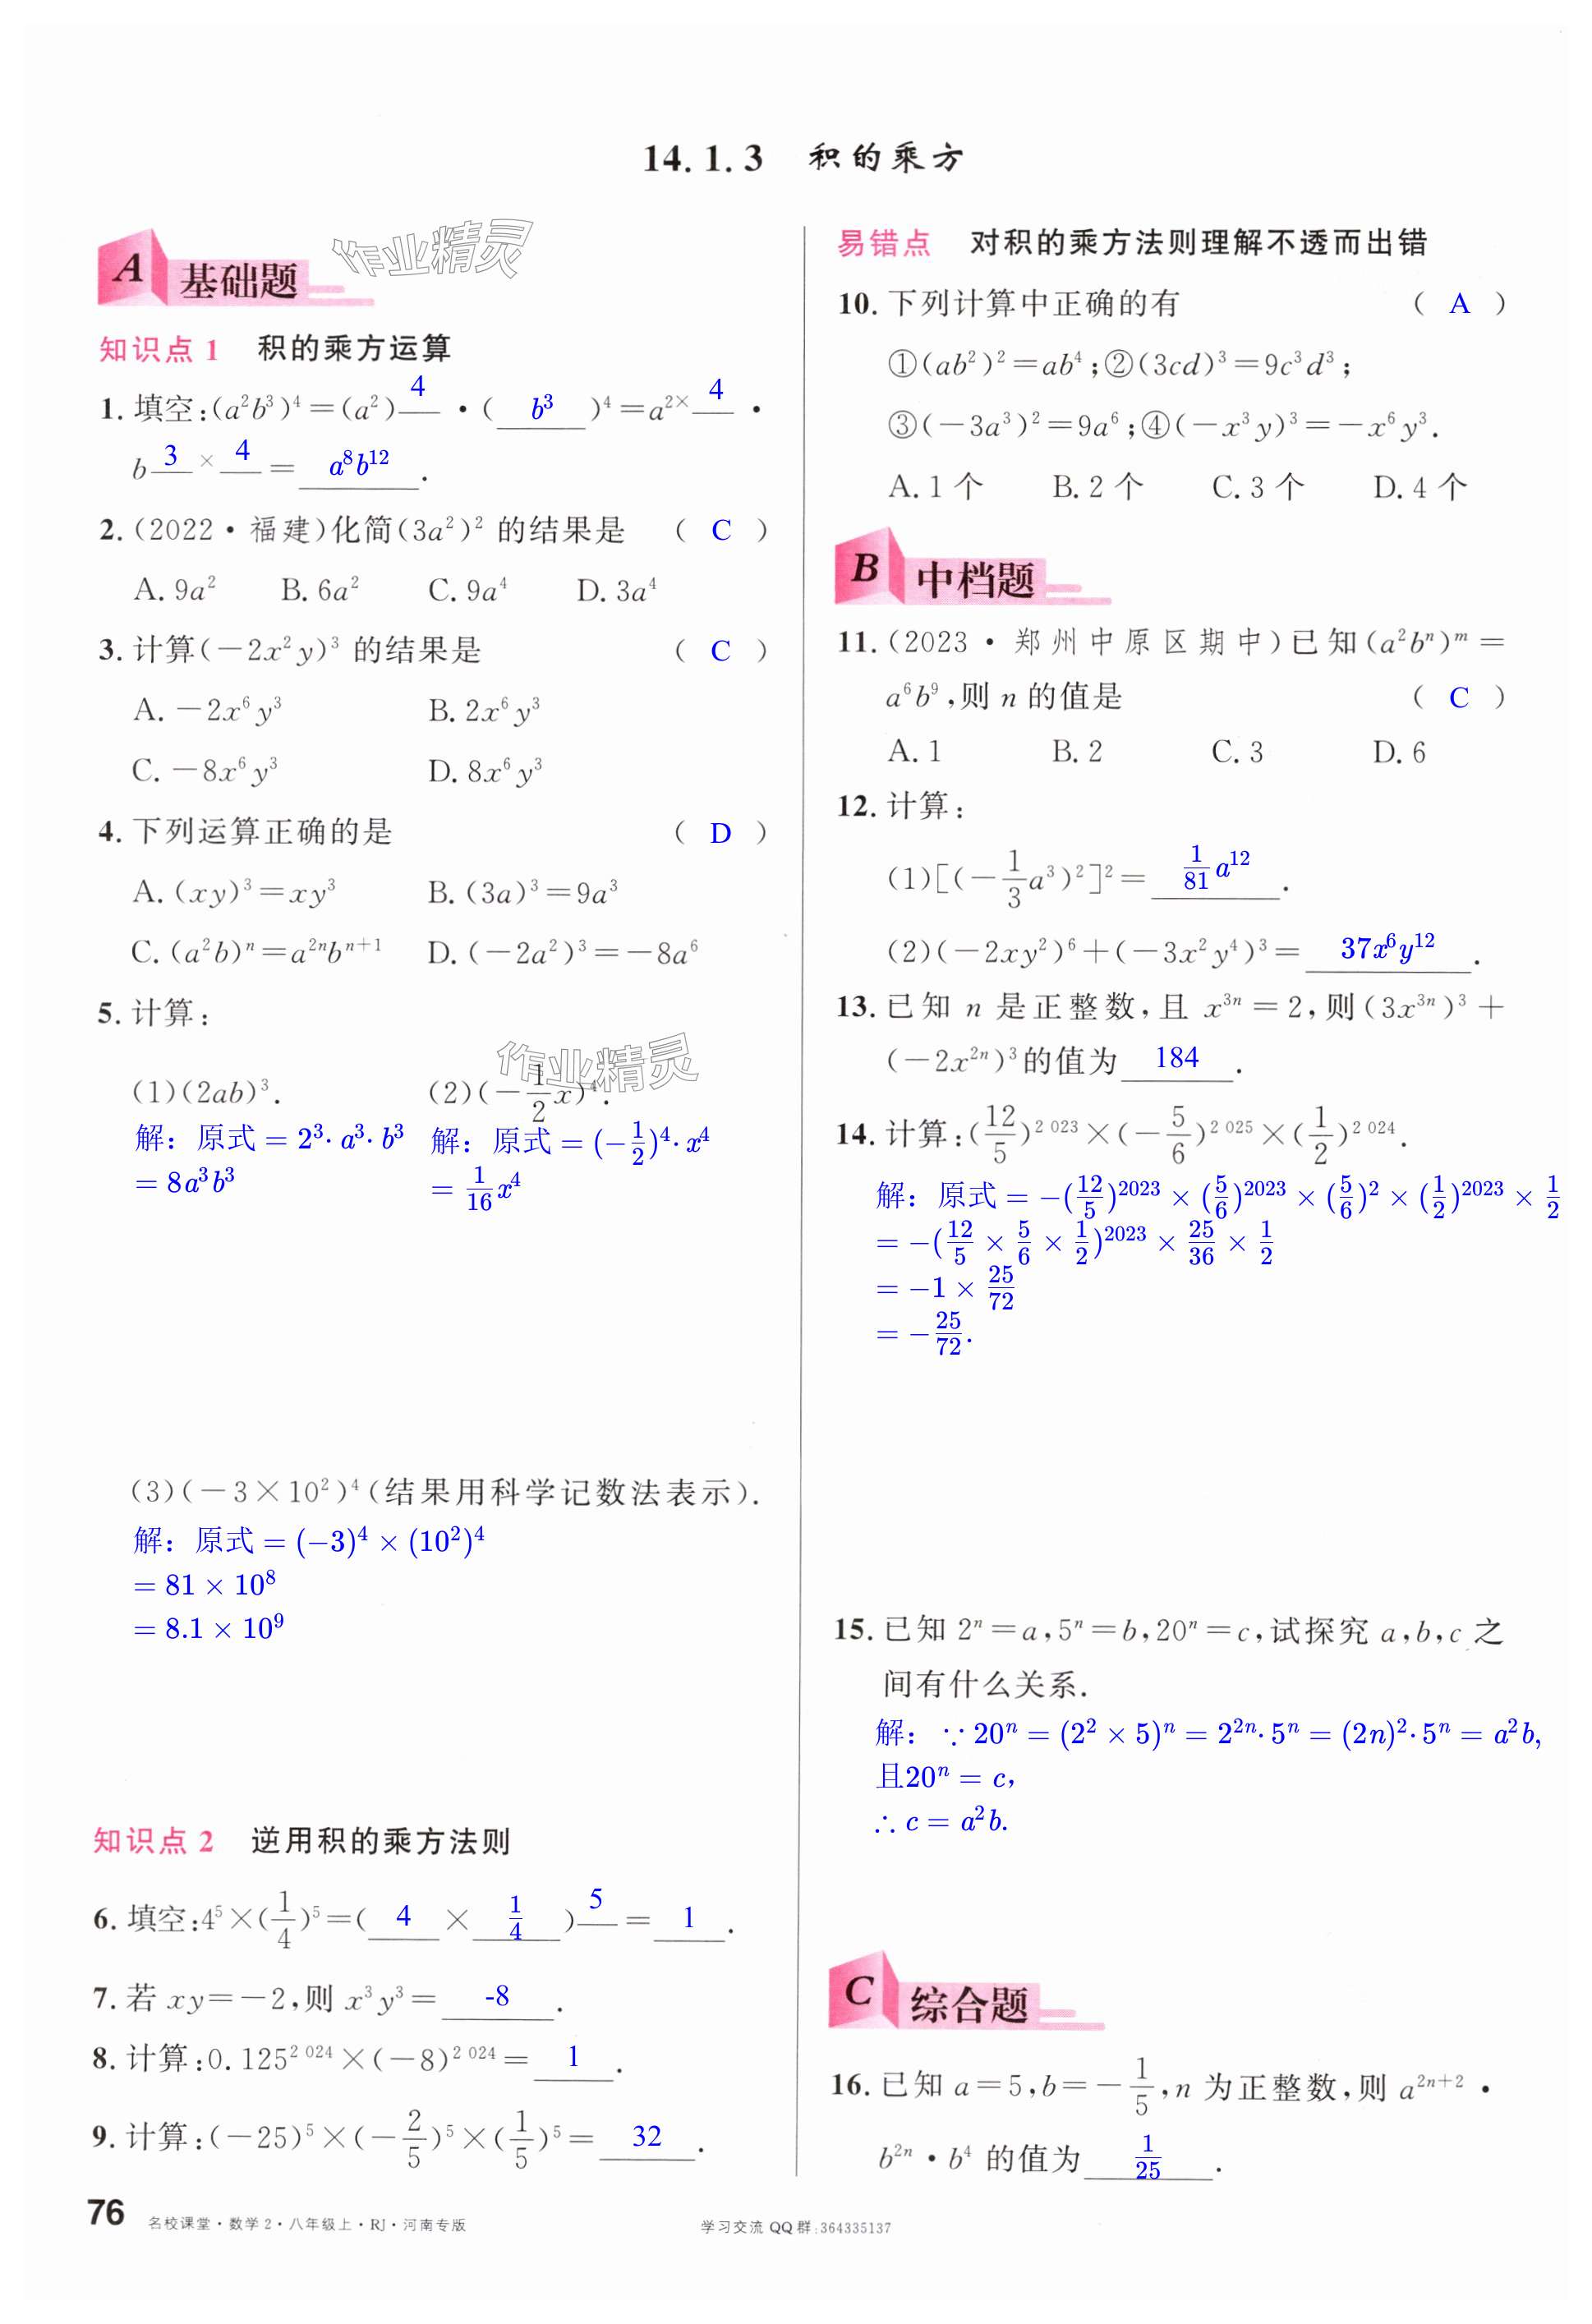 14.1.3 积的乘方
作业精灵
A 基础题
知识点 1 积的乘方运算
1. 填空:(a²b³)⁴=(a²)^4·( b³ )⁴=a^(2×4)·
b^(3×4)= a⁸b¹² .
2. (2022·福建)化简(3a²)² 的结果是 ( C )
A. 9a² B. 6a² C. 9a⁴ D. 3a⁴
3. 计算(-2x²y)³ 的结果是 ( C )
A. -2x⁶y³ B. 2x⁶y³
C. -8x⁶y³ D. 8x⁶y³
4. 下列运算正确的是 ( D )
A. (xy)³=xy³ B. (3a)³=9a³
C. (a²b)ⁿ=a²ⁿbⁿ⁺¹ D. (-2a²)³=-8a⁶
5. 计算:
作业精灵
(1)(2ab)³. (2)(-1/2 x)⁴.
解:原式 = 2³·a³·b³ 解:原式 = (-1/2)⁴·x⁴
= 8a³b³ = 1/16 x⁴
(3)(-3×10²)⁴(结果用科学记数法表示).
解:原式 = (-3)⁴ × (10²)⁴
= 81 × 10⁸
= 8.1 × 10⁹
知识点 2 逆用积的乘方法则
6. 填空:4⁵×(1/4)⁵=( 4 × 1/4 )^5 = 1 .
7. 若 xy=-2,则 x³y³= -8 .
8. 计算:0.125^2 024×(-8)^2 024= 1 .
9. 计算:(-25)⁵×(-2/5)⁵×(1/5)⁵= 32 .
易错点 对积的乘方法则理解不透而出错
10. 下列计算中正确的有 ( A )
①(ab²)²=ab⁴;②(3cd)³=9c³d³;
③(-3a³)²=9a⁶;④(-x³y)³=-x⁶y³.
A. 1 个 B. 2 个 C. 3 个 D. 4 个
B 中档题
11. (2023·郑州中原区期中)已知(a²bⁿ)ᵐ=
a⁶b⁹,则 n 的值是 ( C )
A. 1 B. 2 C. 3 D. 6
12. 计算:
(1)[(-1/3 a³)²]²= 1/81 a¹² .
(2)(-2xy²)⁶+(-3x²y⁴)³= 37x⁶y¹² .
13. 已知 n 是正整数,且 x³ⁿ=2,则(3x³ⁿ)³+
(-2x²ⁿ)³的值为 184 .
14. 计算:(12/5)^2 023×(-5/6)^2 025×(1/2)^2 024.
解:原式 = -(12/5)^2023 × (5/6)^2023 × (5/6)² × (1/2)^2023 × 1/2
= -(12/5 × 5/6 × 1/2)^2023 × 25/36 × 1/2
= -1 × 25/72
= -25/72.
15. 已知 2ⁿ=a,5ⁿ=b,20ⁿ=c,试探究 a,b,c 之
间有什么关系.
解: ∵ 20ⁿ = (2² × 5)ⁿ = 2²ⁿ·5ⁿ = (2n)²·5ⁿ = a²b,
且20ⁿ = c,
∴ c = a²b.
C 综合题
16. 已知 a=5,b=-1/5,n 为正整数,则 a²ⁿ⁺²·
b²ⁿ·b⁴ 的值为 1/25 .
76 名校课堂·数学2·八年级上·RJ·河南专版 学习交流QQ群:364335137